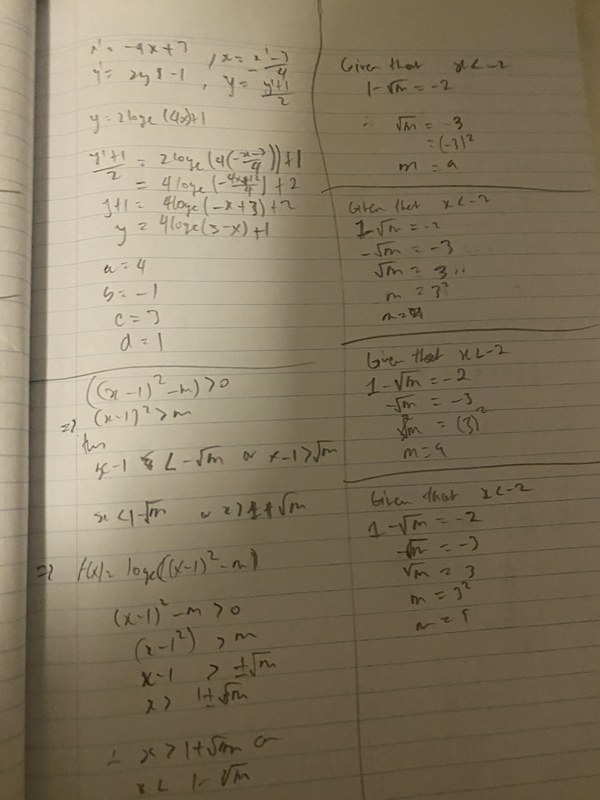 x' = -4x+3 , x = x'-3/-4
y' = 2y-1 , y = y'+1/2
y = 2loge(4x)+1
y'+1/2 = 2loge(4(-x-3/4))+1
= 4loge(
) + 2
y+1 = 4loge(-x+3)+2
y = 4loge(3-x)+1
a = 4
b = -1
c = 3
d = 1
((x-1)²-m)>0
=> (x-1)²>m
thus
x-1 < -√m or x-1>√m
x<1-√m or x>1+√m
=> f(x)= loge((x-1)²-m)
(x-1)²-m>0
(x-1²) > m
x-1 > ±√m
x> 1±√m
∴ x>1+√m or
x< 1-√m
Given that x<-2
1-√m = -2
∴ √m = -3
= (-3)²
m = 9
Given that x<-2
1-√m = -2
-√m = -3
√m = 3
m = 3²
m = 9
Given that x<-2
1-√m = -2
-√m = -3
√m = (3)²
m = 9
Given that x<-2
1-√m = -2
-√m = -3
√m = 3
m = 3²
m = 9